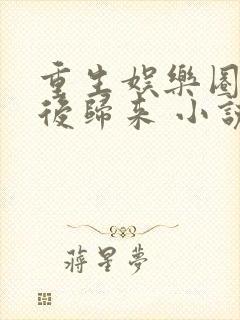 重生娛樂圈
後歸來 小說
蔣星夢